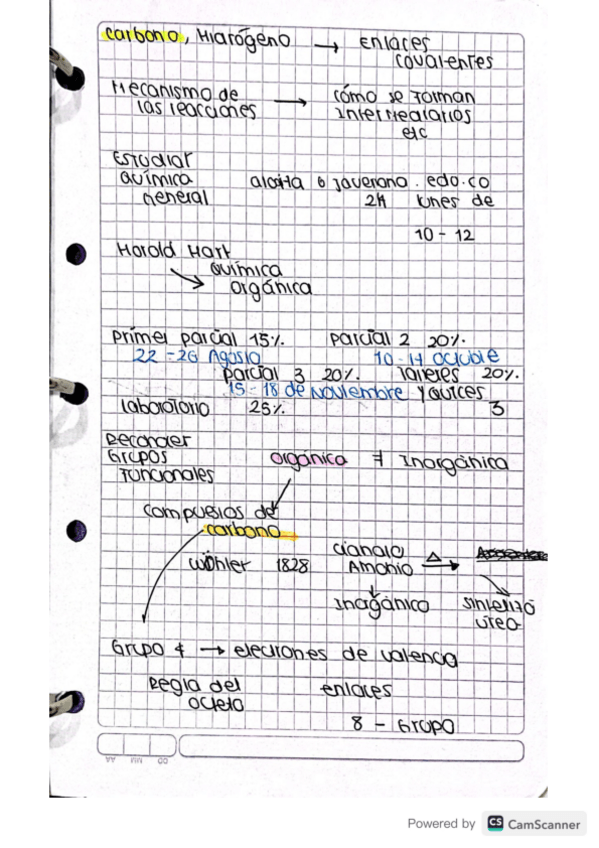 Carbono, Hidrógeno → Enlaces
covalentes
Mecanismo de → cómo se forman
las reacciones intermediarios
etc
Estudiar
química
general 2H lunes de
10 - 12
Harold Hart
química
orgánica
Primer parcial 15% Parcial 2 20%
22 - 26 Agosto 10 - 14 octubre
Parcial 3 20% Talleres 20%
15 - 18 de Noviembre y quices
laboratorio 25% 3
Reconocer
Grupos orgánica ≠ Inorgánica
Funcionales
compuestos de
carbono
Wöhler 1828 cianato Δ →
Amonio
Inogánico sintetizó
úrea
Grupo 4 → electrones de valencia
Regla del enlaces
octeto
8 - Grupo
AA MM DD
Powered by CS CamScanner